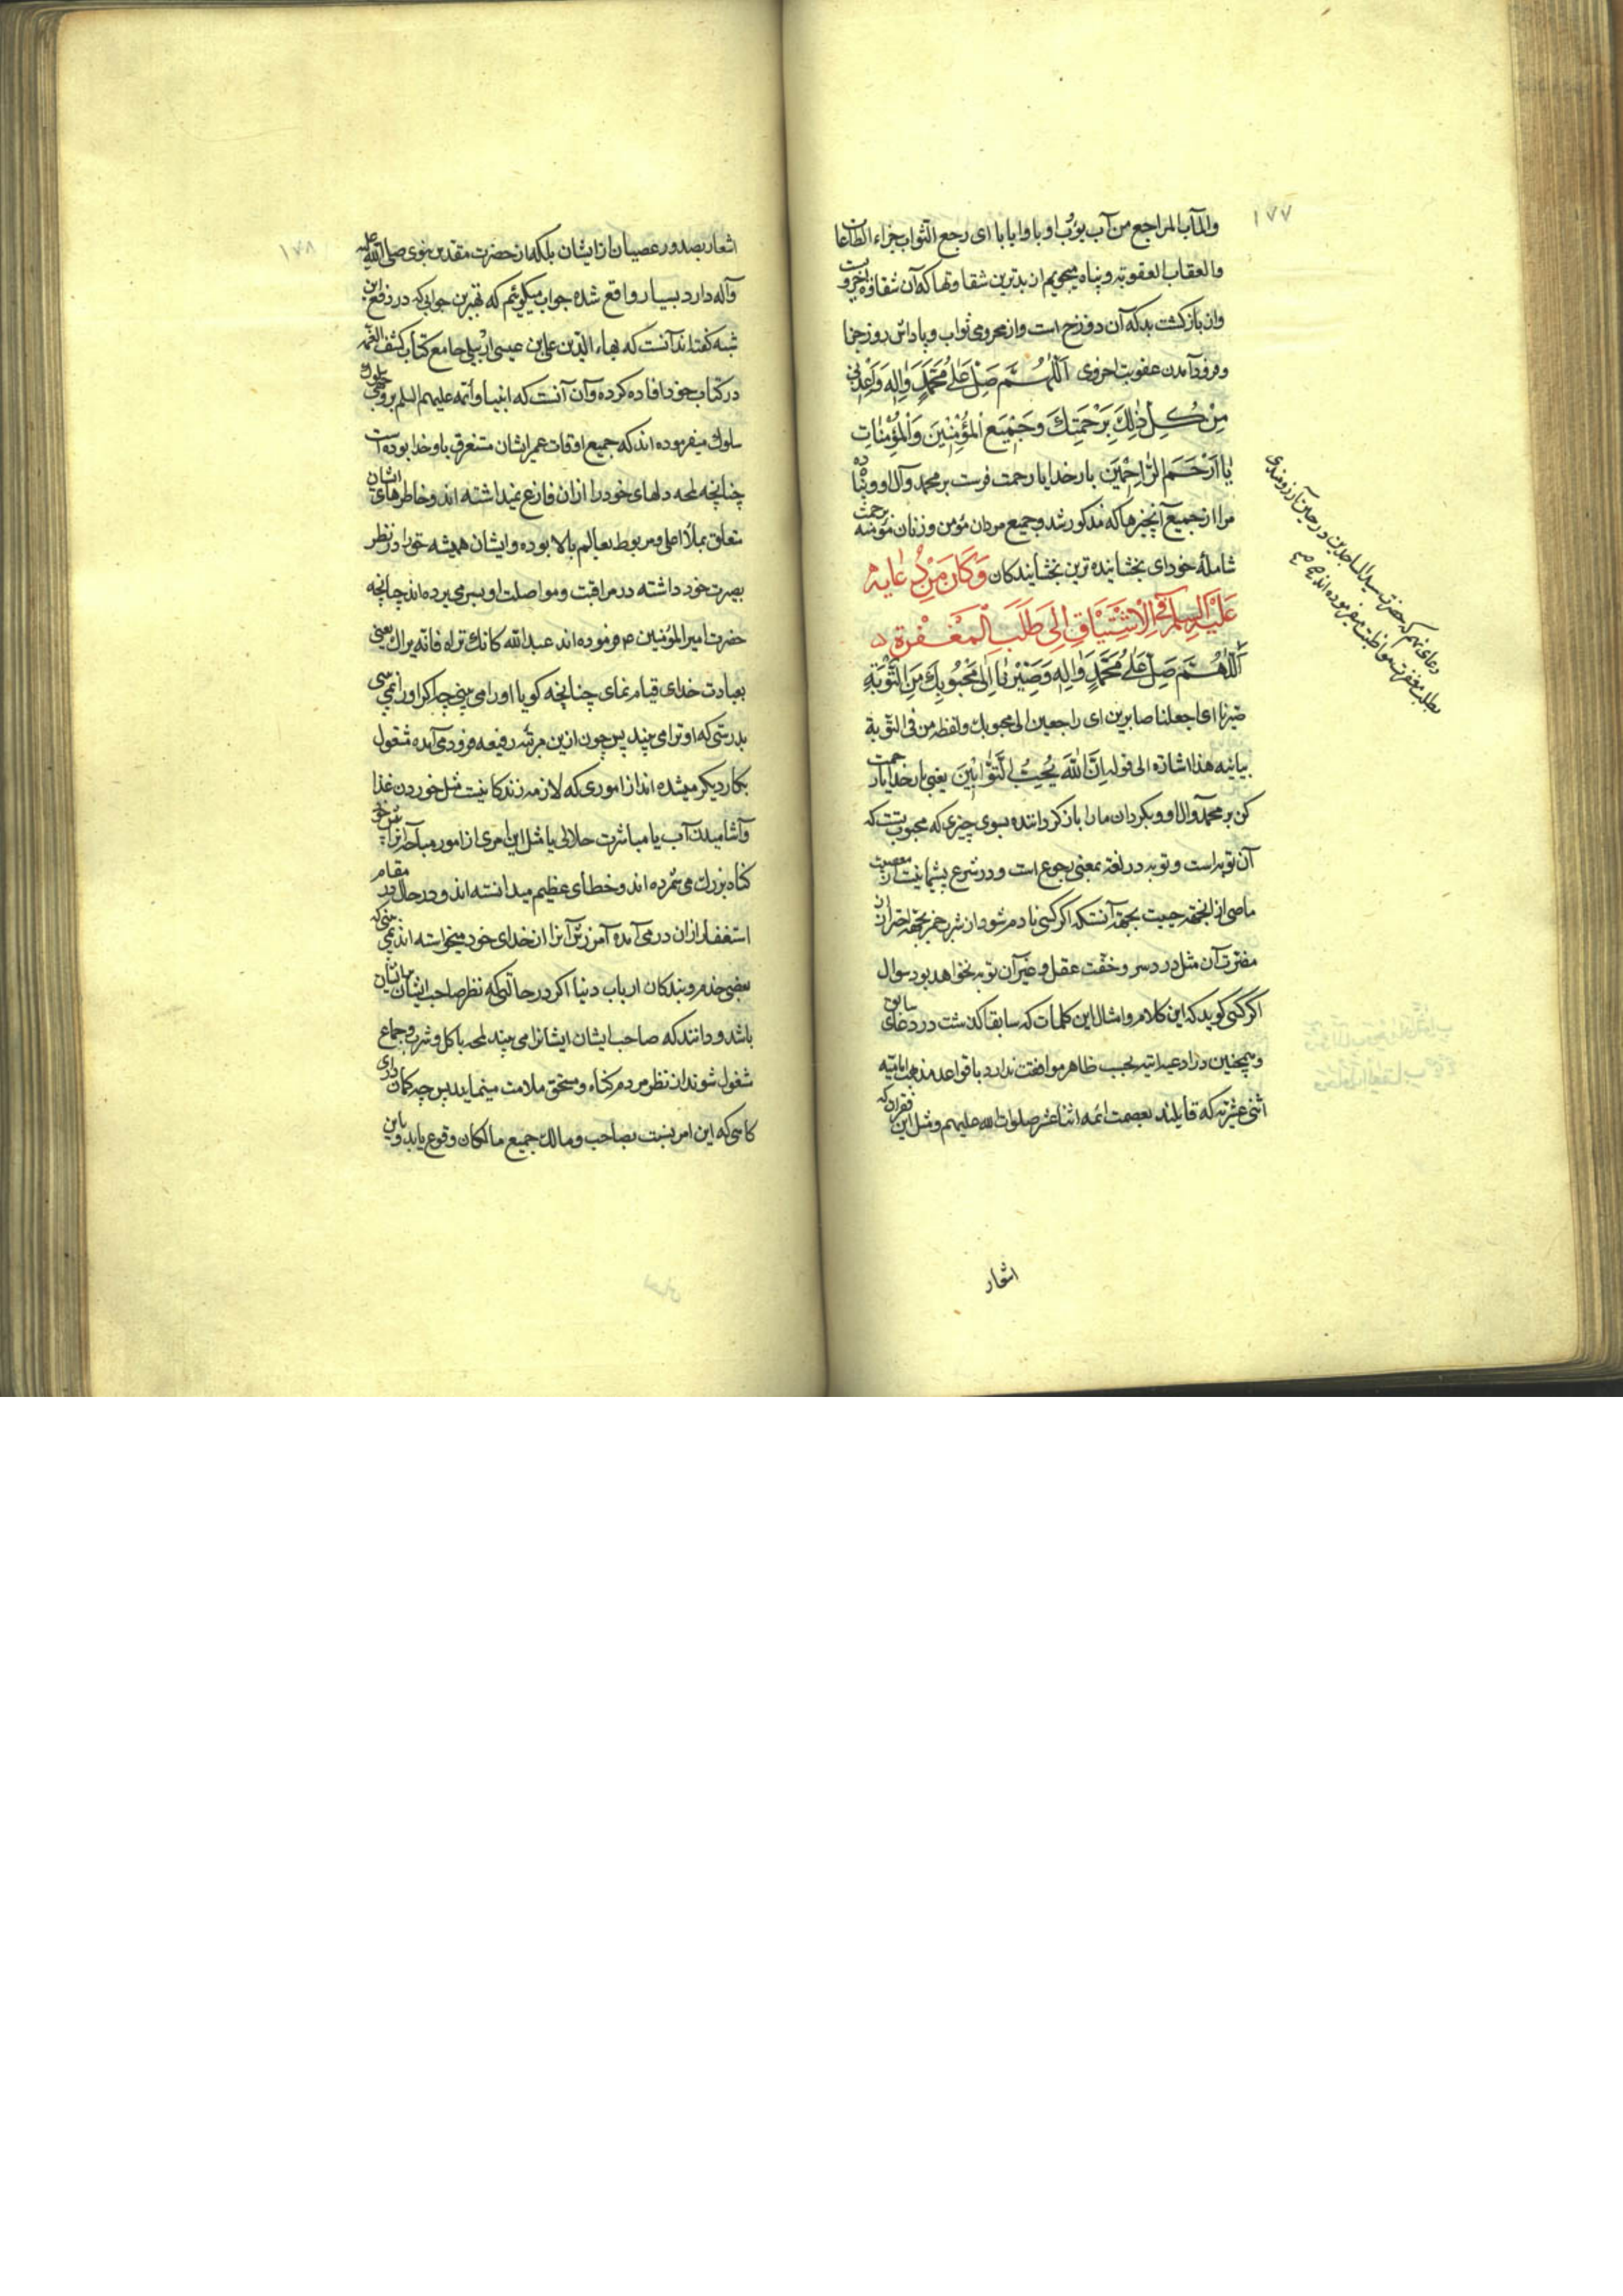 ١٧٧
والمآب المراجع من آب یؤب اوبا وایابا ای رجع الثواب جزاء الطاعات
والعقاب العقوبة و پناه میجویم از بدترین شقاوتها که آن شقاوة اخرویت
واز بازکشت بد که آن دوزخ است واز محرومی ثواب و پاداش روز جزا
وفرود آمدن عقوبت اخروی اَللّٰهُمَّ صَلِّ عَلٰی مُحَمَّدٍ وَاٰلِهِ وَاَعِذْنی
مِنْ كُلِّ ذٰلِكَ بِرَحْمَتِكَ وَجَمیعَ الْمُؤْمِنینَ وَالْمُؤْمِنٰاتِ
یٰا اَرْحَمَ الرّٰاحِمینَ بار خدایا رحمت فرست بر محمد وآل او وپناه ده
مرا از جمیع آنچیزها که مذکور شد وجمیع مردان مؤمن وزنان مؤمنه برحمت
شاملهٔ خود ای بخشاینده ترین بخشایندکان وَكَانَ مِنْ دُعَایِهِ
عَلَیْهِ السَّلَم فِی الْاِشْتِیَاقِ اِلَی طَلَبِ الْمَغْفِرَةِ
اَللّٰهُمَّ صَلِّ عَلٰی مُحَمَّدٍ وَاٰلِهِ وَصَیِّرْنٰا اِلٰی مَحْبُوبِكَ مِنَ التَّوْبَةِ
صیّرنا ای اجعلنا صایرین ای راجعین الی محبوبك ولفظه من فی التوبة
بیانیه هذا اشارة الی قوله اِنَّ اللّٰهَ یُحِبُّ التَّوّٰابینَ یعنی بار خدایا رحمت
کن بر محمد وآل او وبکردان ما را بازکرداننده بسوی چیزی که محبوب تست که
آن توبه است وتوبه در لغة بمعنی رجوع است ودر شرع پشیمانیست از معصیت
ماضی از انجهة حیثیت بجهة آنستکه اکر کسی نادم شود از شرب خمر بجهة احتراز از
مضرت آن مثل درد سر وخفت عقل وغیر آن توبه نخواهد بود سوال
اکر کسی کوید که این کلام وامثال این کلمات که سابقا کذشت در دعای سابق
وهمچنین در ادعیه اتیه بحسب ظاهر موافقت ندارد با قواعد مذهب امامیه
اثنی عشریه که قایلند بعصمت ائمه اثنا عشر صلوات الله علیهم ومثل این فقرات که
اشعار
دعای نهم که حضرت سید الساجدین در حین آرزومندی
بطلب مغفرت مواظبت میفرموده اند
١٧٨
اشعار بصدور عصیان از ایشان بلکه از حضرت مقدس نبوی صلی الله علیه
وآله دارد بسیار واقع شده جواب میکوئیم که بهترین جوابی که در دفع این
شبه کفته اند آنست که بهاء الدین علی بن عیسی اربیلی جامع کتاب کشف الغمه
در کتاب خود افاده کرده وآن آنست که انبیا وائمه علیهم السلم بر وجهی سلوك
سلوك میفرموده اند که جمیع اوقات عمر ایشان مستغرق با وخدا بوده است
چنانچه لمحه دلهای خود را ازان فارغ نمیداشته اند وخاطرهای ایشان
متعلق بملأ اعلی ومربوط بعالم بالا بوده وایشان همیشه خود را در نظر
بصیرت خود داشته در مراقبت ومواصلت او بسر می برده اند چنانچه
حضرت امیر المؤمنین ع فرموده اند عبد الله کانك تراه فانه یراك یعنی
بعبادت خدای قیام نمای چنانچه کویا او را می بینی چه اکر او را نمی بینی
بدرستی که او ترا می بیند پس چون ازین مرتبه رفیعه فرود می آمده مشغول
بکار دیکر میشده اند از اموری که لازمه زندکانیست مثل خوردن غذا
وآشامیدن آب یا مباشرت حلالی یا مثل این امری از امور مباحه آنرا بر خود
کناه بزرك می شمرده اند وخطای عظیم میدانسته اند ودر حال در مقام
استغفار ازان در می آمده آمرزش آنرا از خدای خود میخواسته اند نمی بینی که
بعضی خدم وبندکان ارباب دنیا اکر در حالتی که نظر صاحب ایشان بر ایشان
باشد ودانند که صاحب ایشان ایشانرا می بیند لمحه باکل وشرب وجماع
مشغول شوند از نظر مردم کناه ومستحق ملامت مینماید پس چه کمان داری
کاهی که این امر نسبت بصاحب ومالك جمیع مالکان وقوع یابد وباین